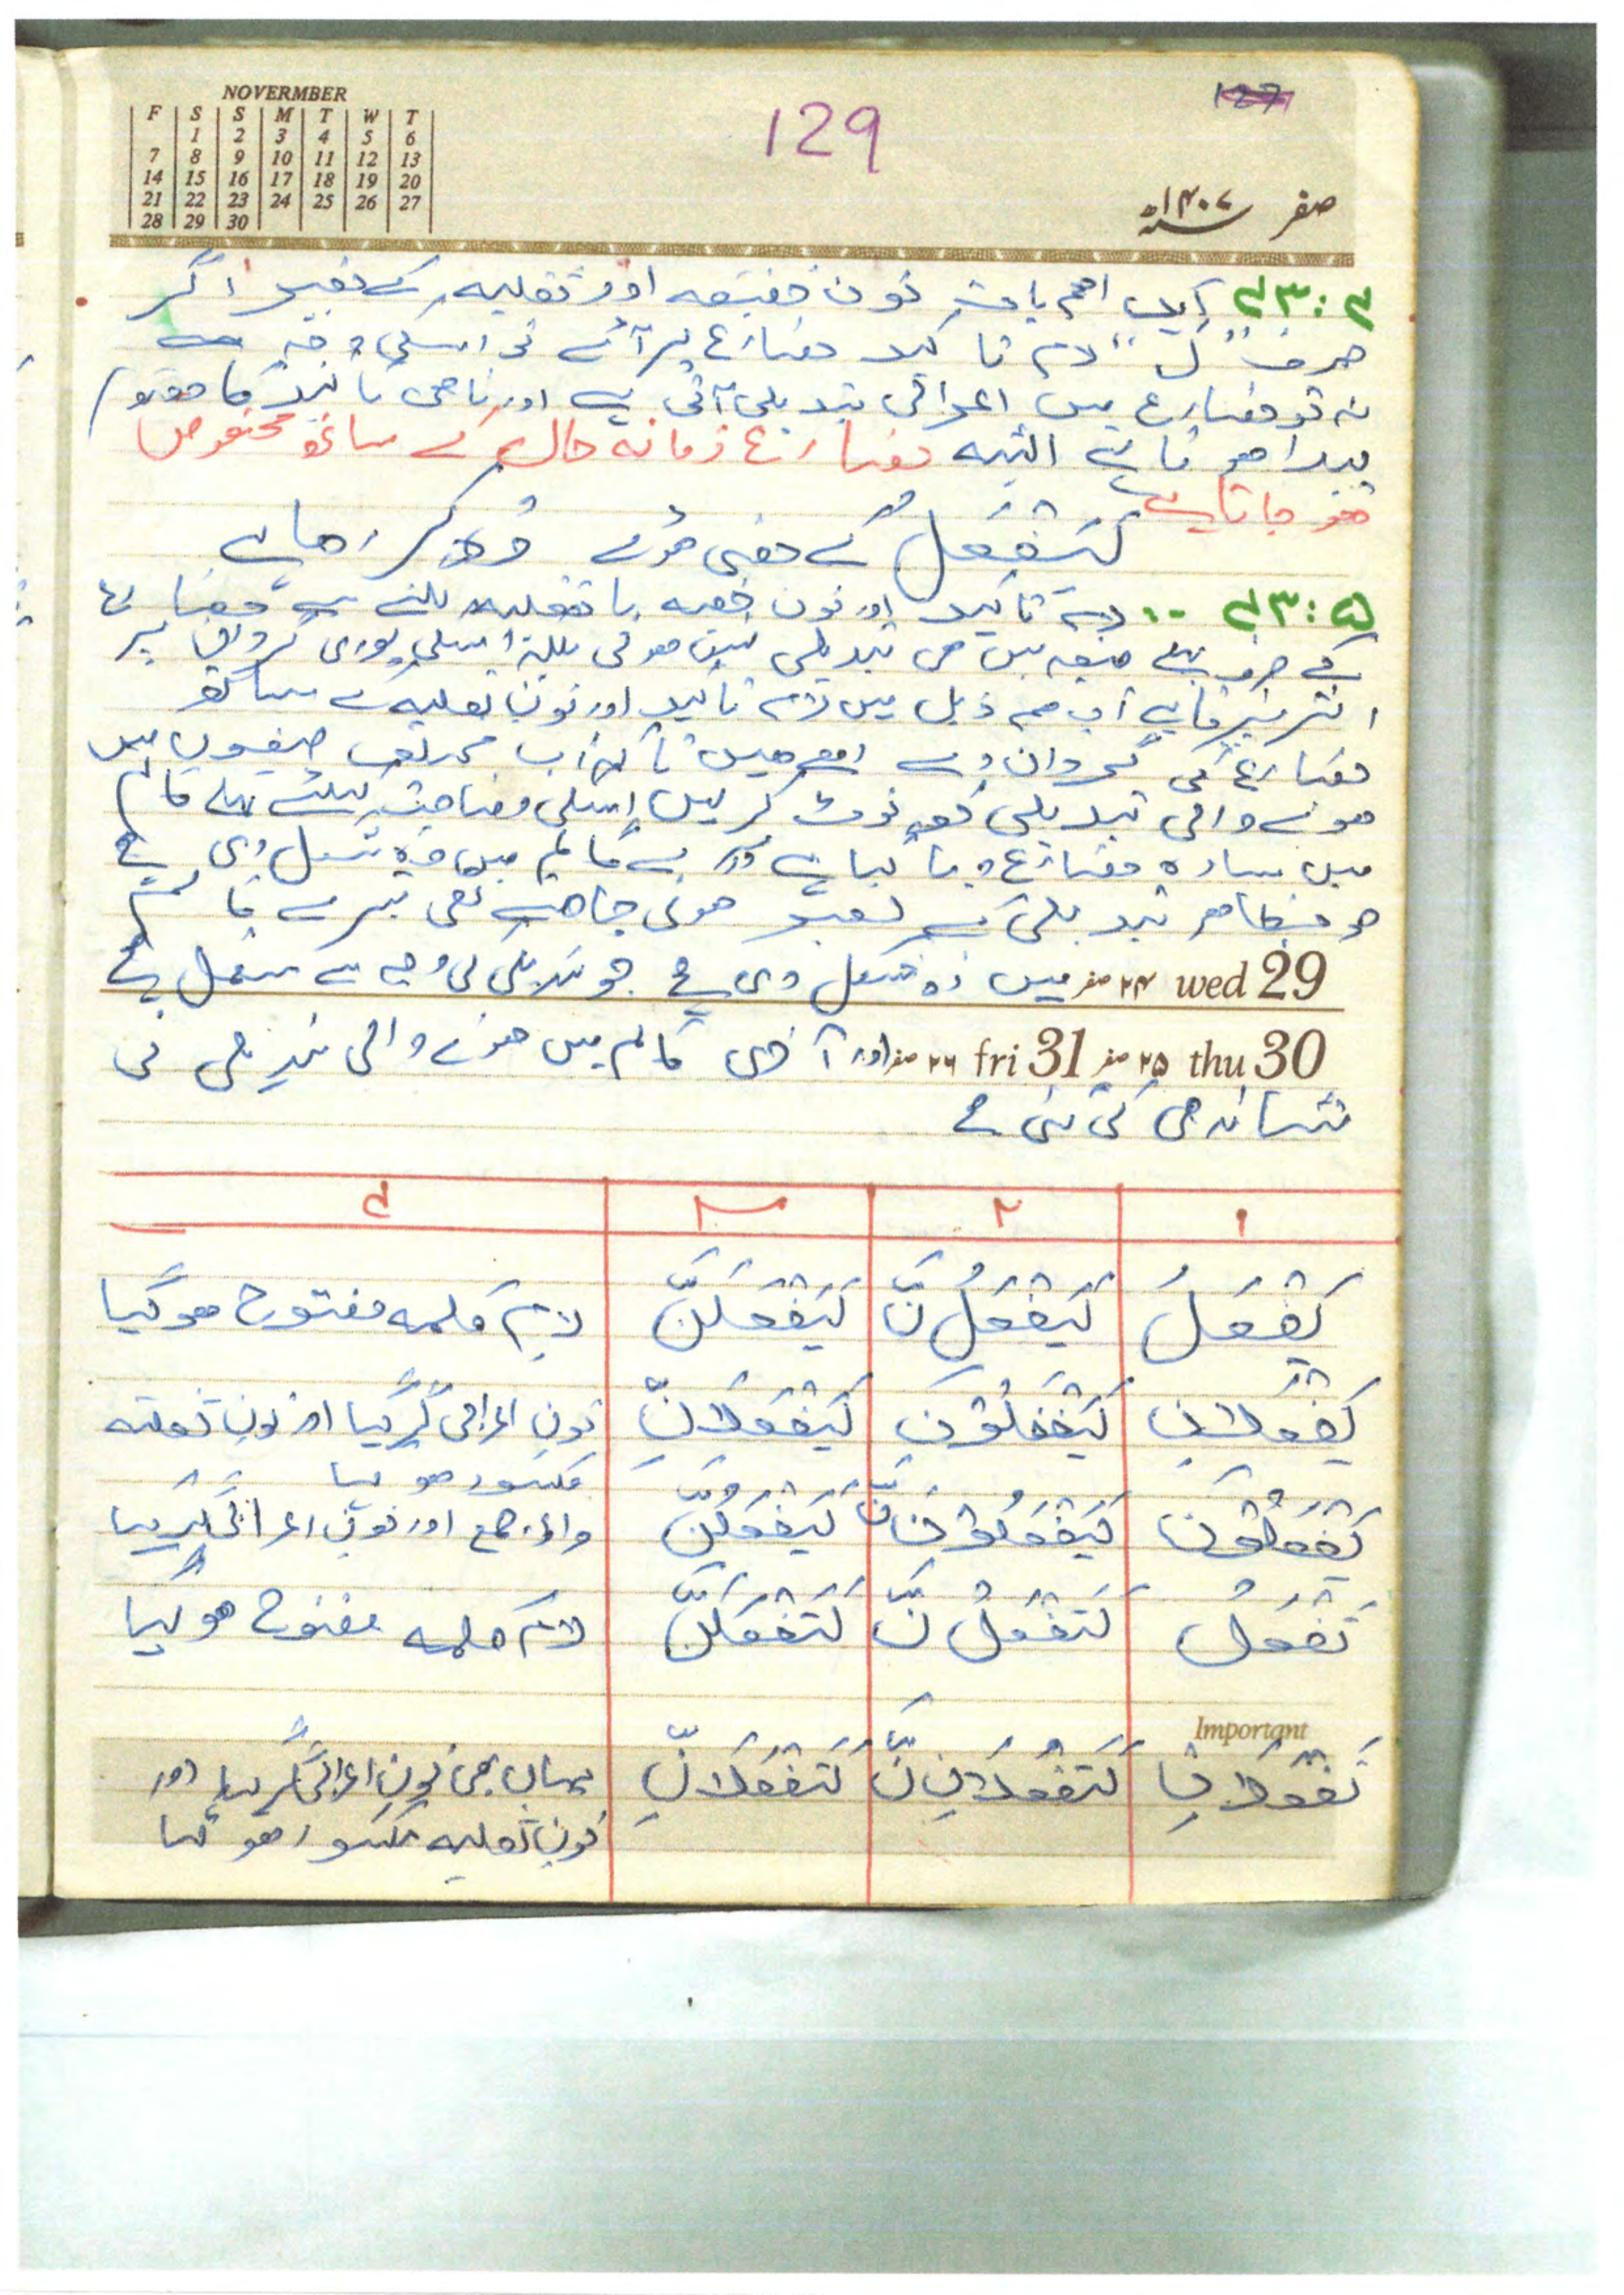 NOVERMBER
F S S M T W T
1 2 3 4 5 6
7 8 9 10 11 12 13
14 15 16 17 18 19 20
21 22 23 24 25 26 27
28 29 30
129
127
صفر ۱۴۰۷ھ
۴۳:۴ ایک اہم بات نون خفیفہ اور ثقلیہ کے بغیر اگر
صرف "لَ" لام تاکید مضارع پر آئے تو اسکی وجہ سے
نہ تو مضارع میں اعرابی تبدیلی آتی ہے اور نا ہی تاکید کا مفہوم
پیدا ہوتا ہے البتہ مضارع زمانہ حال کے ساتھ مخصوص
ہو جاتا ہے
لَیَفْعَلُ کے معنی ہونگے وہ کر رہا ہے
۴۳:۵ -- لام تاکید اور نون خفیہ یا ثقلیہ ملنے سے مضارع
کے صرف پہلے صیغہ میں ہی تبدیلی نہیں ہوتی بلکہ اسکی پوری گردان پر
اثر پڑتا ہے اب ہم ذیل میں لام تاکید اور نون ثقلیہ کے ساتھ
مضارع کی گردان دے رہے ہیں تاکہ آپ مختلف صیغوں میں
ہونے والی تبدیلی کو نوٹ کر لیں اسکی وضاحت کیلئے پہلے کالم
میں سادہ مضارع دیا گیا ہے دوسرے کالم میں وہ شکل دی ہے
جو بظاہر تبدیلی کے بغیر ہونی چاہیے تھی تیسرے کالم
wed 29 ۲۴ صفر میں وہ شکل دی ہے جو تبدیلی کی وجہ سے مستعمل ہے
thu 30 ۲۵ صفر fri 31 ۲۶ صفر اور آخری کالم میں ہونے والی تبدیلی کی
نشاندہی کی گئی ہے
۱ ۲ ۳ ۴
یَفْعَلُ لَیَفْعَلُ نَّ لَیَفْعَلَنَّ لام کلمہ مفتوح ہو گیا
یَفْعَلَانِ لَیَفْعَلَانِ نَّ لَیَفْعَلَانِّ نون اعرابی گر گیا اور نون ثقلیہ
مکسور ہو گیا
یَفْعَلُوْنَ لَیَفْعَلُوْنَ نَّ لَیَفْعَلُنَّ واؤ جمع اور نون اعرابی گر گیا
تَفْعَلُ لَتَفْعَلُ نَّ لَتَفْعَلَنَّ لام کلمہ مفتوح ہو گیا
Important
تَفْعَلَانِ لَتَفْعَلَانِ نَّ لَتَفْعَلَانِّ یہاں بھی نون اعرابی گر گیا اور
نون ثقلیہ مکسور ہو گیا